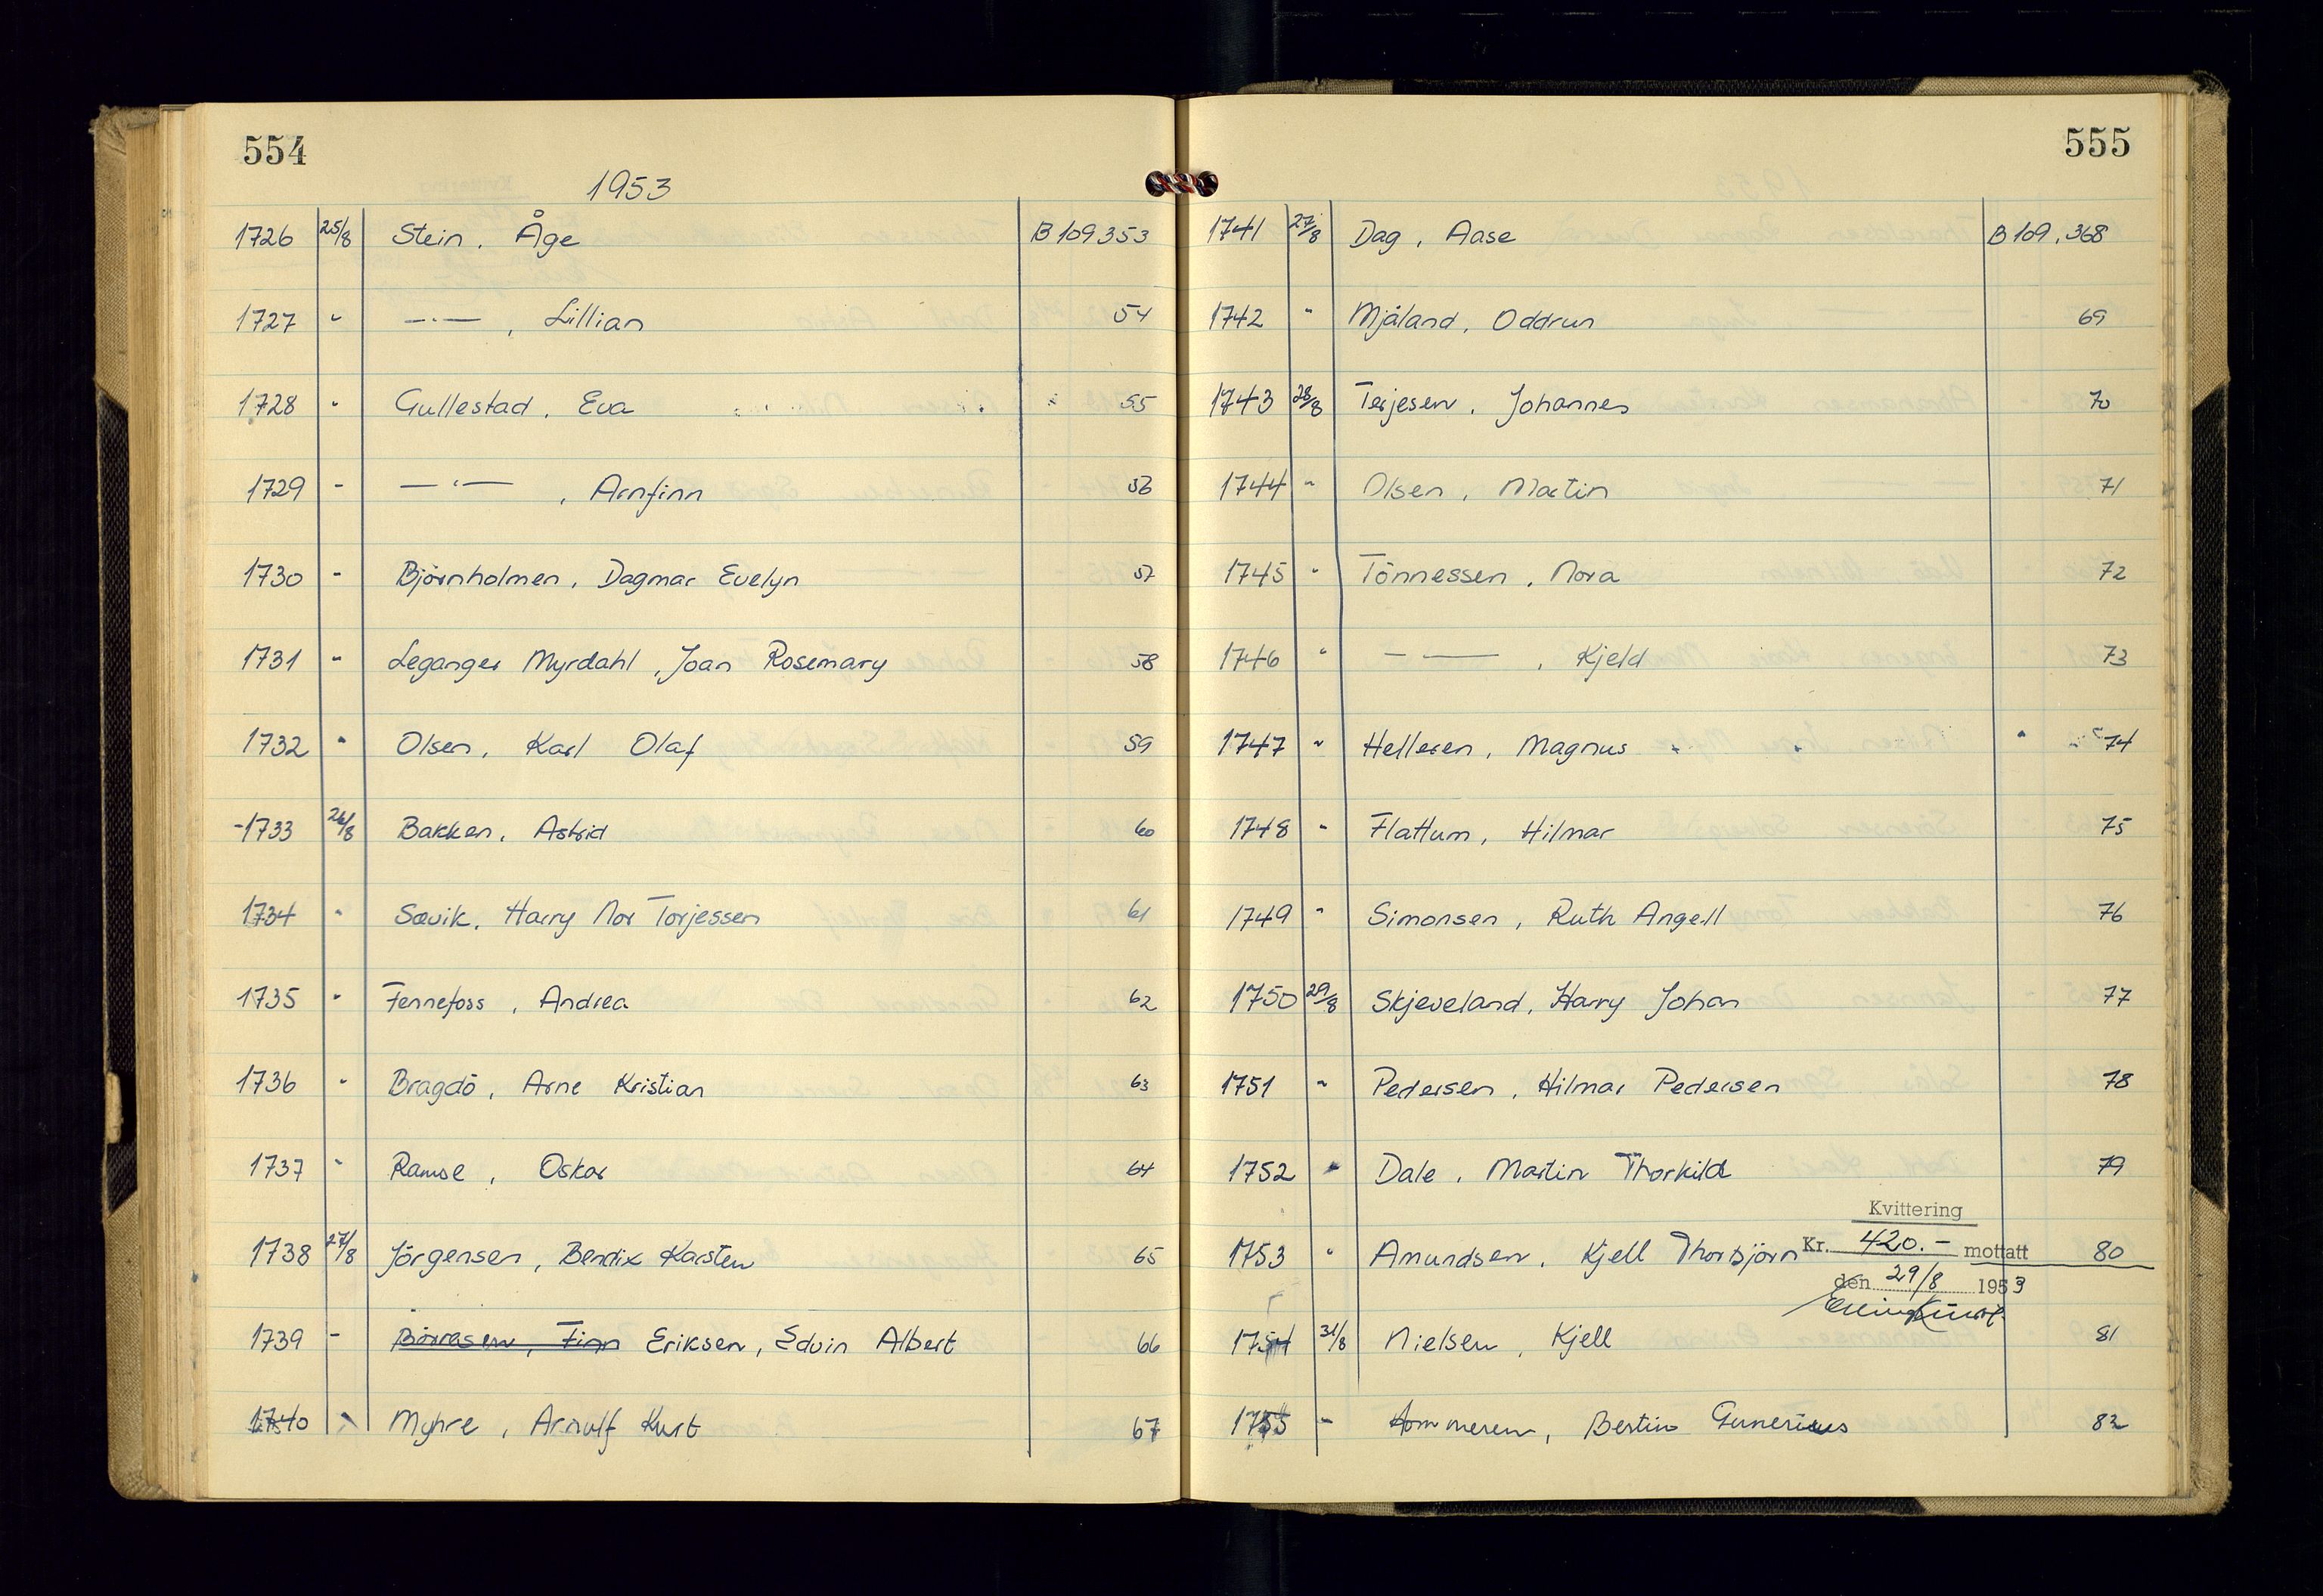 554
1953
1726 25/8 Stein, Åge B 109353
1727 " —"— , Lillian 54
1728 " Gullestad, Eva 55
1729 - —"— , Arnfinn 56
1730 - Björnholmen, Dagmar Evelyn 57
1731 - Leganger Myrdahl, Joan Rosemary 58
1732 " Olsen, Karl Olaf 59
-1733 26/8 Bakken, Astrid 60
1734 " Sævik, Harry Nor Torjessen 61
1735 " Fennefoss, Andrea 62
1736 " Bragdö, Arne Kristian 63
1737 " Ramse, Oskar 64
1738 27/8 Jörgensen, Bendix Karsten 65
1739 - Börresen, Finn Eriksen, Edvin Albert 66
1740 " Myhre, Arnulf Kurt 67
555
1741 27/8 Dag, Aase B 109.368
1742 " Mjåland, Oddrun 69
1743 28/8 Terjesen, Johannes 70
1744 " Olsen, Martin 71
1745 " Tönnessen, Nora 72
1746 " — — , Kjeld 73
1747 " Helleren, Magnus 74
1748 " Flattum, Hilmar 75
1749 " Simonsen, Ruth Angell 76
1750 29/8 Skjeveland, Harry Johan 77
1751 " Pedersen, Hilmar Pedersen 78
1752 " Dale, Martin Thorkild 79
Kvittering
1753 " Amundsen, Kjell Thorbjörn Kr. 420.- mottatt 80
den 29/8 1953
1754 31/8 Nielsen, Kjell 81
1755 - Hommeren, Bertin Gunerius 82